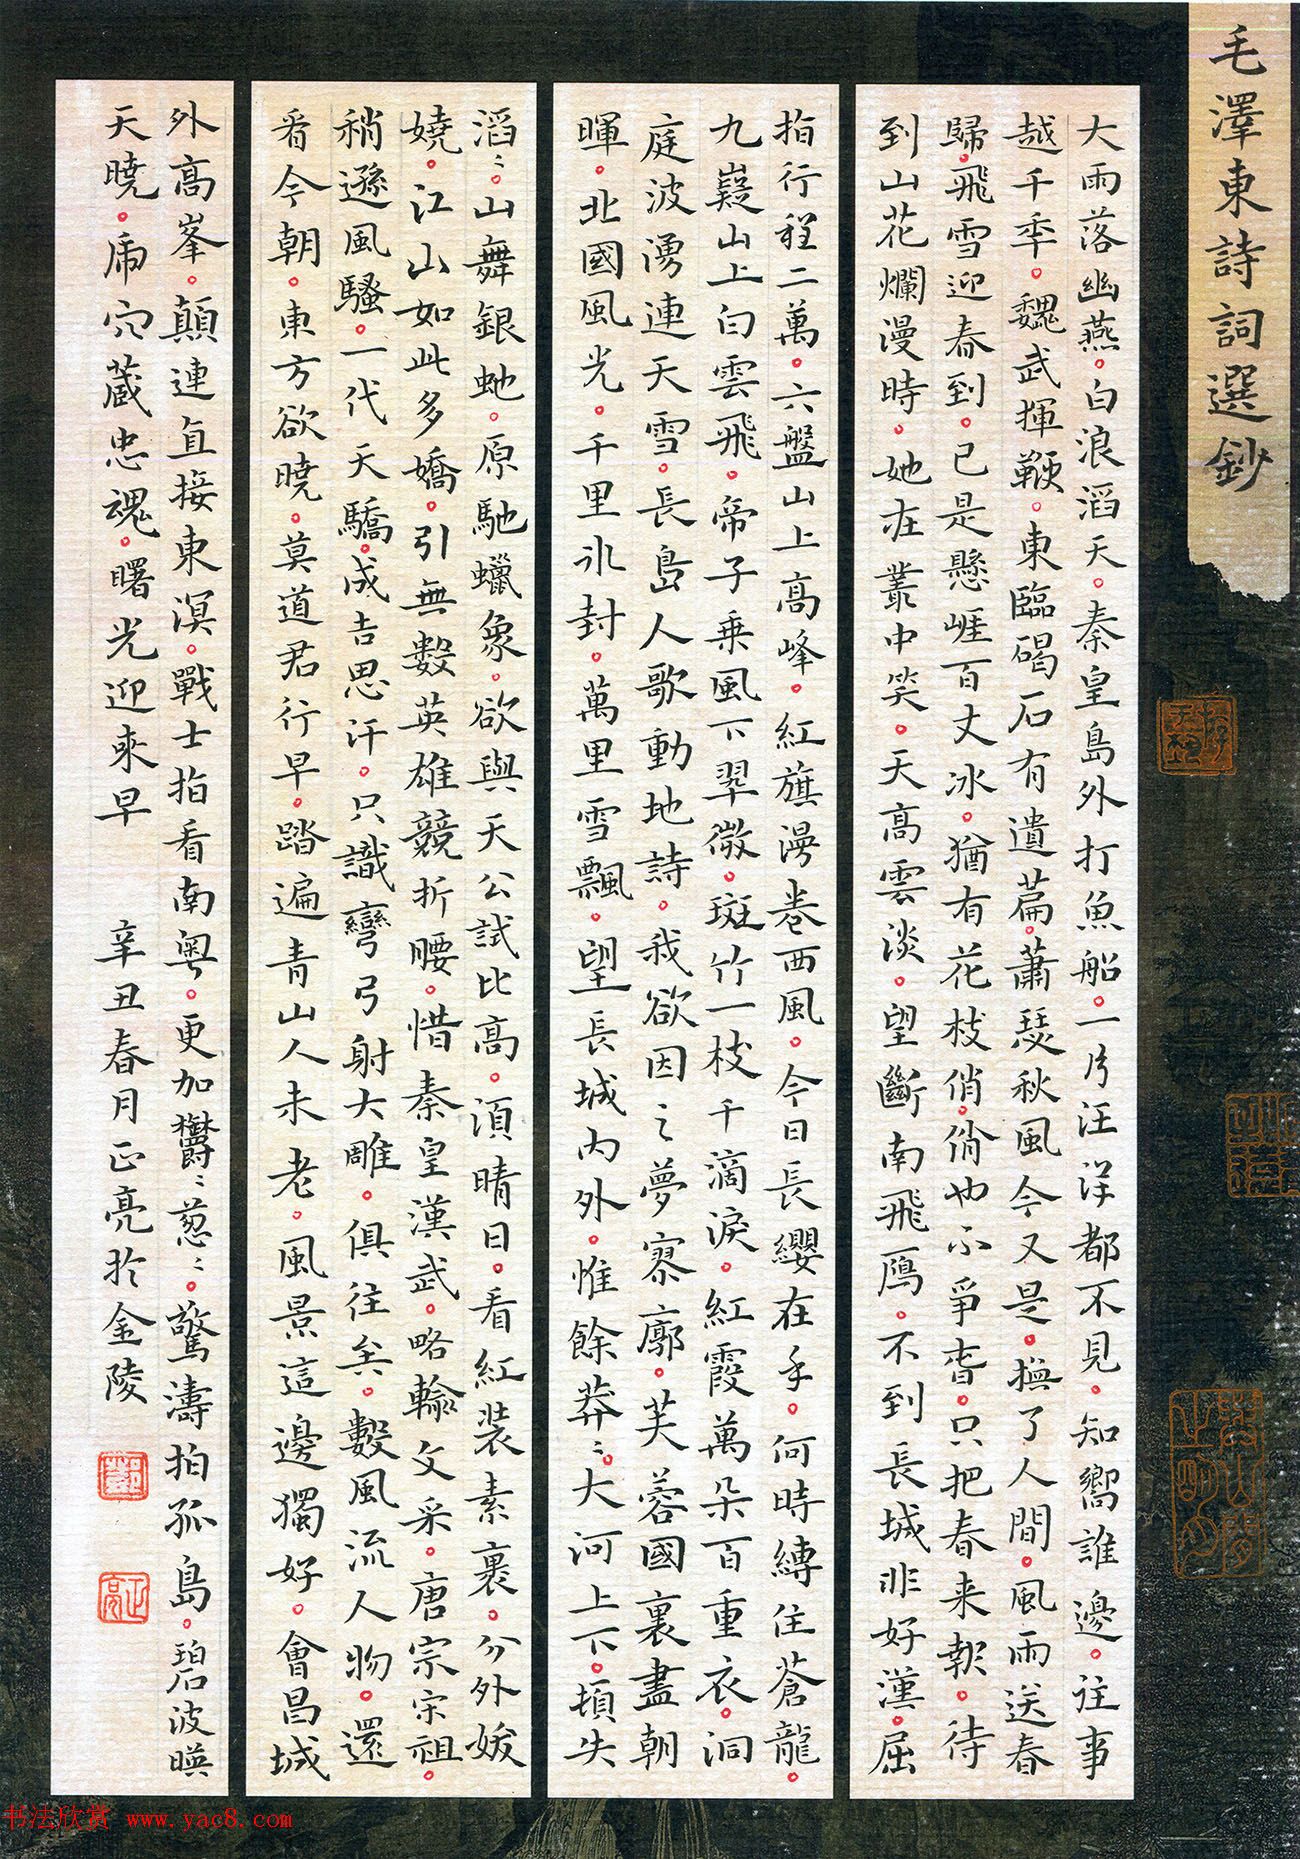 毛澤東詩詞選鈔
大雨落幽燕。白浪滔天。秦皇島外打魚船。一片汪洋都不見。知嚮誰邊。往事
越千秊。魏武揮鞭。東臨碣石有遺篇。蕭瑟秋風今又是。換了人間。風雨送春
歸。飛雪迎春到。已是懸崖百丈冰。猶有花枝俏。俏也不爭春。只把春来報。待
到山花爛漫時。她在叢中笑。天高雲淡。望斷南飛鴈。不到長城非好漢。屈
指行程二萬。六盤山上高峰。紅旗漫卷西風。今日長纓在手。何時縛住蒼龍。
九嶷山上白雲飛。帝子乘風下翠微。斑竹一枝千滴淚。紅霞萬朵百重衣。洞
庭波湧連天雪。長島人歌動地詩。我欲因之夢寥廓。芙蓉國裏盡朝
暉。北國風光。千里冰封。萬里雪飄。望長城內外。惟餘莽〻。大河上下。頓失
滔〻。山舞銀蛇。原馳蠟象。欲與天公試比高。須晴日。看紅裝素裹。分外妖
嬈。江山如此多嬌。引無數英雄競折腰。惜秦皇漢武。略輸文采。唐宗宋祖。
稍遜風騷。一代天驕。成吉思汗。只識彎弓射大雕。俱往矣。數風流人物。還
看今朝。東方欲曉。莫道君行早。踏遍青山人未老。風景這邊獨好。會昌城
外高峯。顛連直接東溟。戰士指看南粤。更加鬱〻葱〻。驚濤拍孤島。碧波暎
天曉。虎穴藏忠魂。曙光迎來早 辛丑春月正亮於金陵
正亮
书法欣赏 www.yac8.com